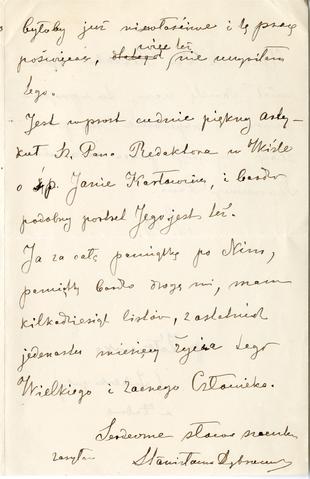 byłoby już niewłaściwe i tę pracę
poświęcać, dlatego więc też nie wysyłam
tego.
Jest wprost cudnie piękny arty-
kuł Sz. Pana Redaktora w Wiśle
o śp. Janie Karłowiczu, i bardzo
podobny portret Jego jest też.
Ja za całą pamiątkę po Nim,
pamiątkę bardzo drogą mi, mam
kilkadziesiąt listów, z ostatnich
jedenastu miesięcy życia tego
Wielkiego i zacnego Człowieka.
Serdeczne słowa szacunku
zasyłam Stanisława